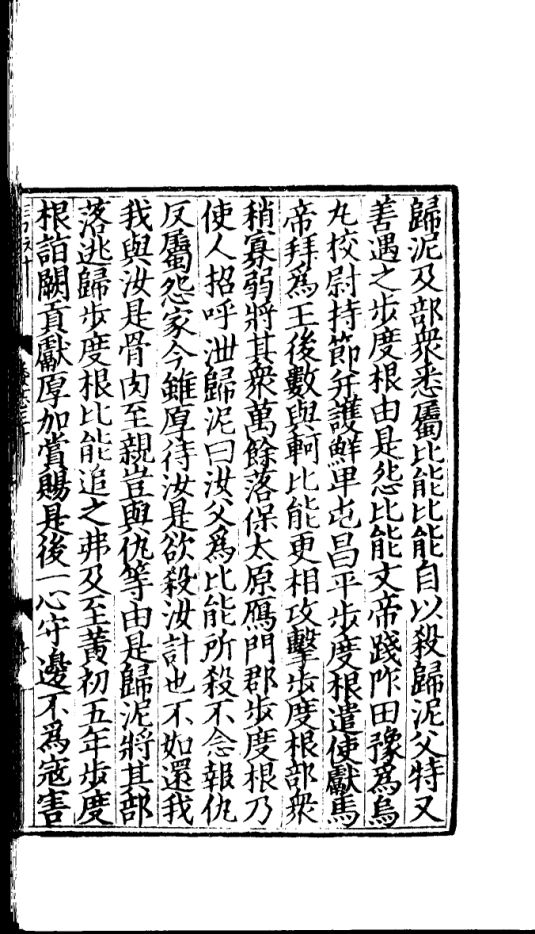 歸泥及部衆悉屬比能比能自以殺歸泥父特又
善遇之步度根由是怨比能文帝踐阼田豫爲烏
丸校尉持節幷護鮮卑屯昌平步度根遣使獻馬
帝拜爲王後數與軻比能更相攻擊步度根部衆
稍寡弱將其衆萬餘落保太原鴈門郡步度根乃
使人招呼泄歸泥曰汝父爲比能所殺不念報仇
反屬怨家今雖厚待汝是欲殺汝計也不如還我
我與汝是骨肉至親豈與仇等由是歸泥將其部
落逃歸步度根比能追之弗及至黃初五年步度
根詣闕貢獻厚加賞賜是後一心守邊不爲寇害